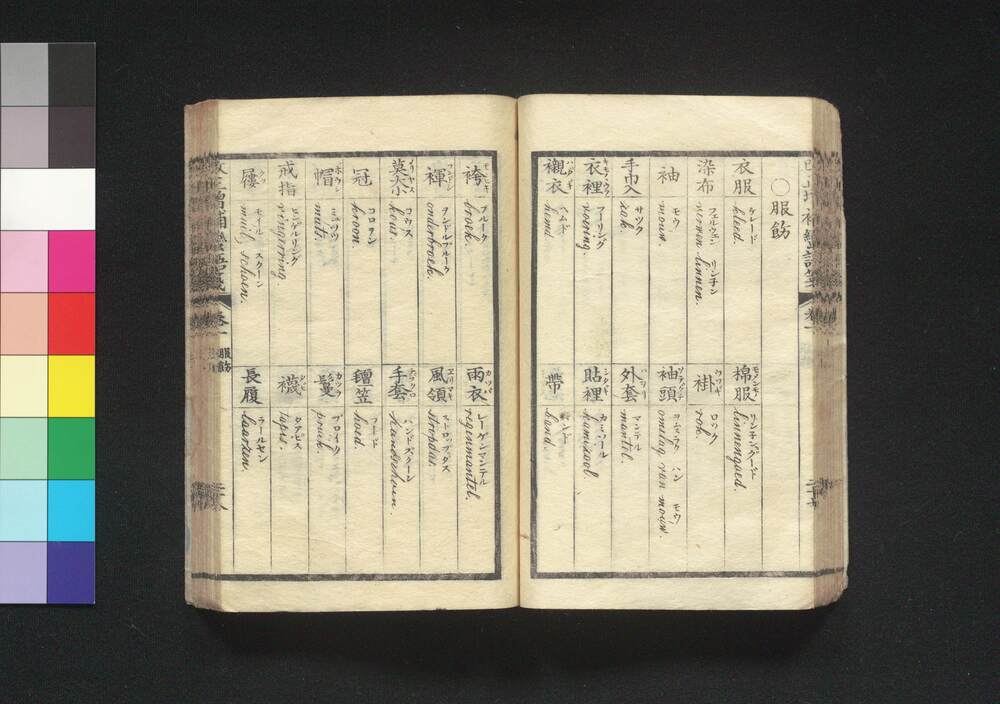 〇服飭
衣服 クレード kleed.
染布 リンネン linnen.
袖 モウ mouw.
手巾入 サック zak.
衣裡 フーリング voering.
襯衣 hemd
棉服 linnengoed.
褂 ロック rok.
袖頭 オムスラク ハン モウ omslag van mouw.
外套 マンテル mantel.
貼裡 カミソール kamisool.
帶 band
袴 ブルーク broek.
褌 ヲンドルブルーク onderbroek.
莫大小 コウス kous.
冠 コロヲン kroon.
帽 ミュツツ muts.
戒指 ヒンゲルリング vingerring.
屨 モイル スクーン muil, schoen.
雨衣 レーゲンマンテル regenmantel.
風領 ストロップダス stropdas.
手套 ハンドスクーン handschoen.
氊笠 フード hoed.
鬘 プロイク pruik.
襪 タアピス tapis.
長履 ラールセン laarzen.
改正増補蠻語箋
卷一
服飭